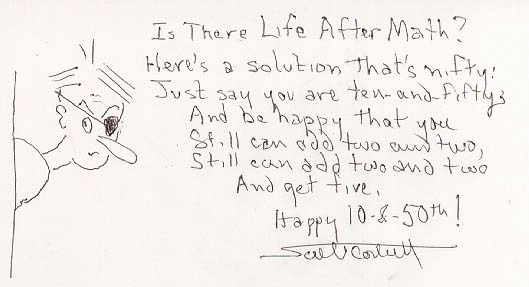 Is There Life After Math?
Here's a solution that's nifty:
Just say you are ten-and-fifty,
And be happy that you
Still can add two and two,
Still can add two and two
And get five.
Happy 10-&-50th!